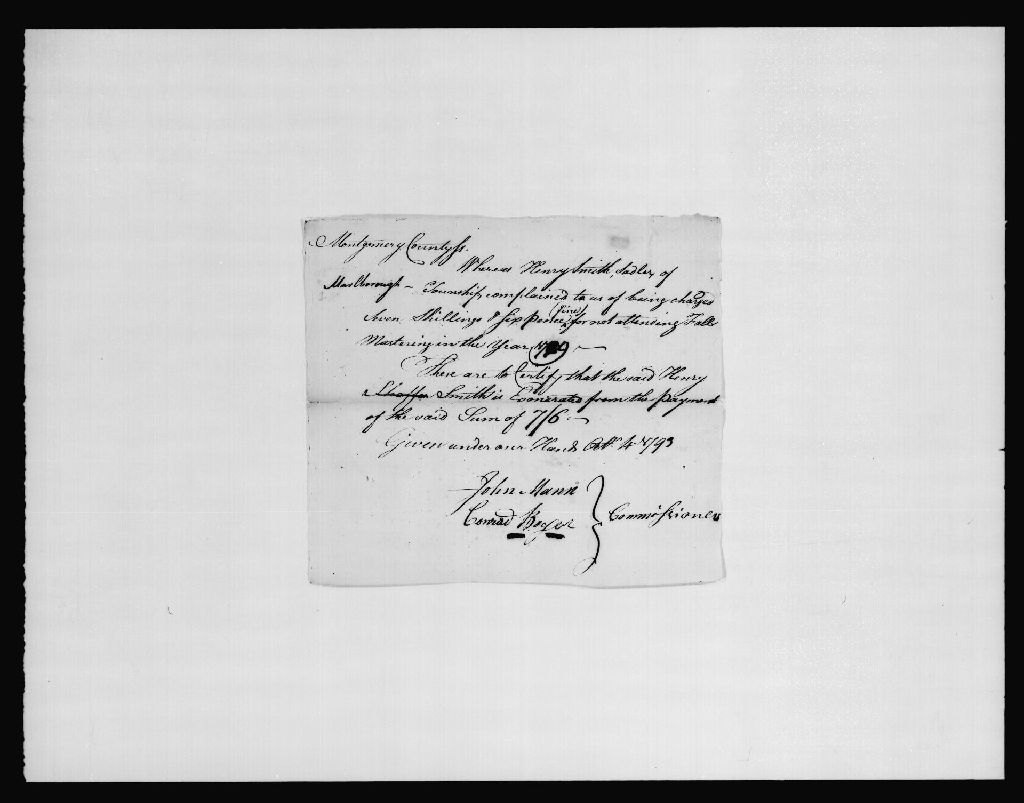 Montgomery County ss.
Whereas Henry Smith, Sadler, of
Marlborough - Township complained to us of being charged
Seven Shillings & Six Pence (fine) for not attending Falls
Mustering in the Year
These are to Certify that the said Henry
Shaffer Smith is Exonerated from the payment
of the said Sum of 7/6 -
Given under our Hands Octr. 4 1793
John Mann
Conrad Boyer } Commissioners